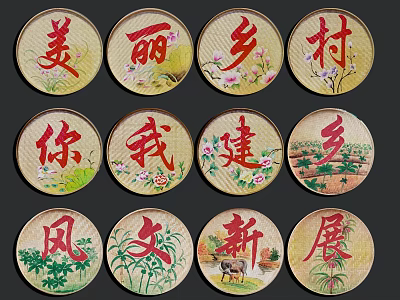 美丽乡村
你我建乡
风文新展